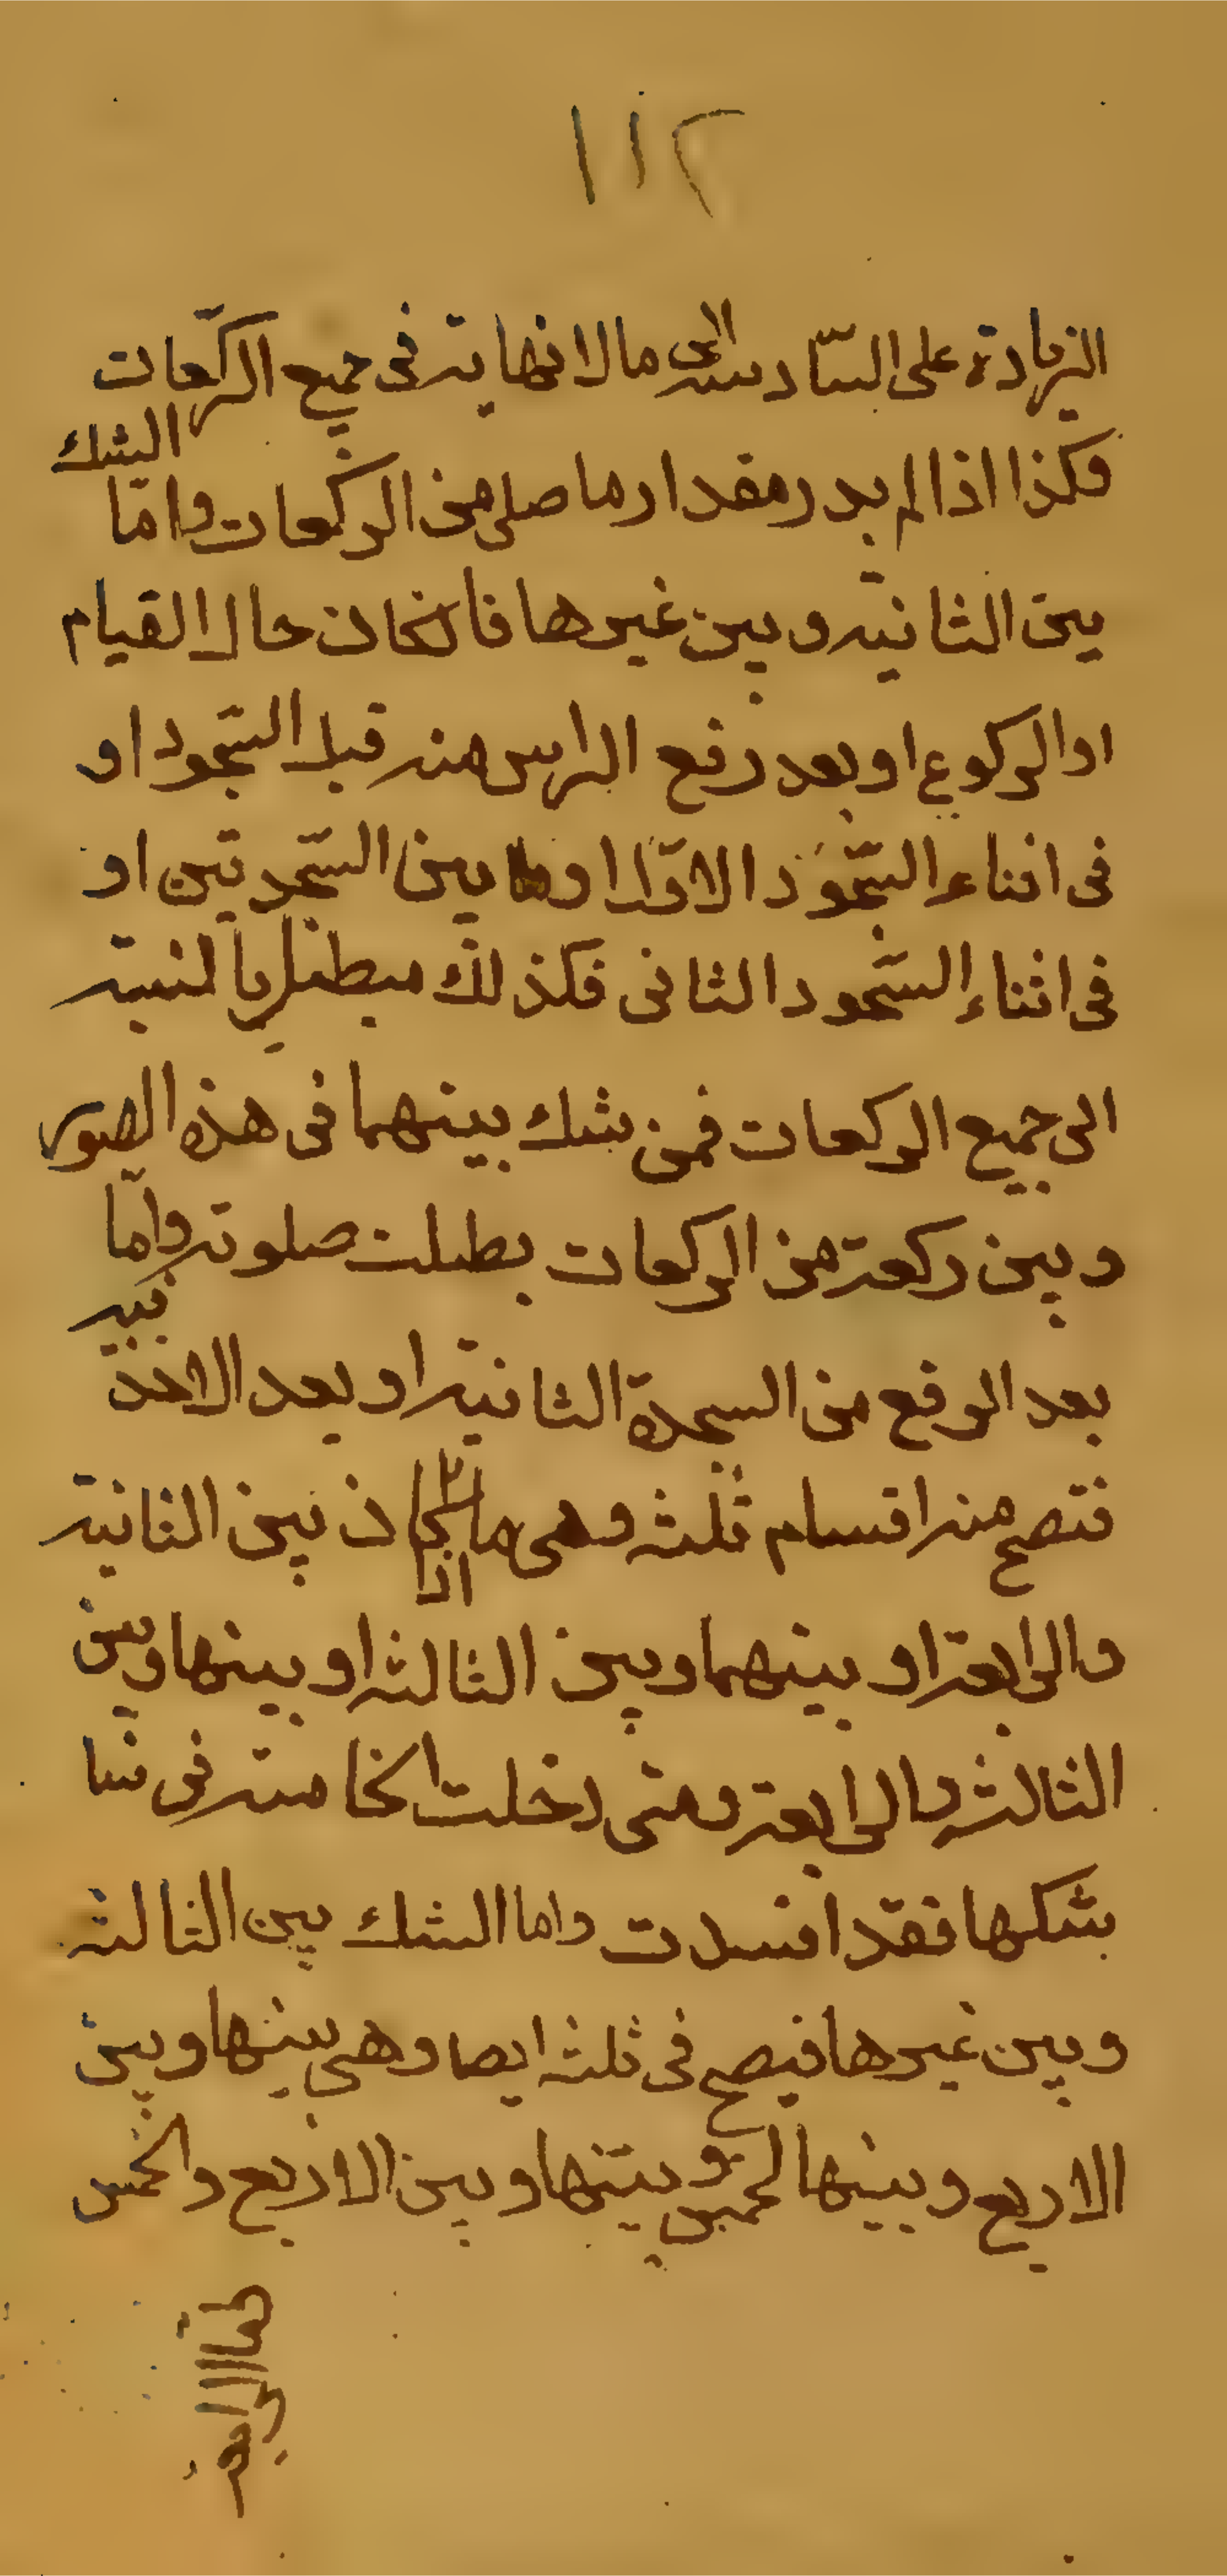 ١١٢
الزيادة على السّادسه الى مالا نهايته فى جميع الركّعات
فكذا اذا لم يدر مقدار ما صلى من الركعات وامّا الشك
بين الثانيّه وبين غيرها فأنكان حال القيام
او الركوع او بعد رفع الراس منه قبل السّجود او
فى اثناء السّجود الاوّل او ما بين السّجدتين او
فى اثناء السّجود الثانى فكذلك مبطل بالنسبة
الى جميع الركعات فمن شك بينهما فى هذه الصور
وبين ركعة من الركعات بطلت صلوته وامّا
بعد الرفع من السجدة الثانية او بعد الاخذ فيه
فتصح منه اقسام ثلثه وهى ما اذا كان بين الثانية
والرابعة او بينهما وبين الثالثه او بينها وبين
الثالثه والرابعة ومتى دخلت الخامسة فى
شكها فقد افسدت واما الشك بين الثالثه
وبين غيرها فيصح فى ثلثه ايضا وهى بينها وبين
الاربع وبينها لخمس وبينها وبين الاربع والخمس